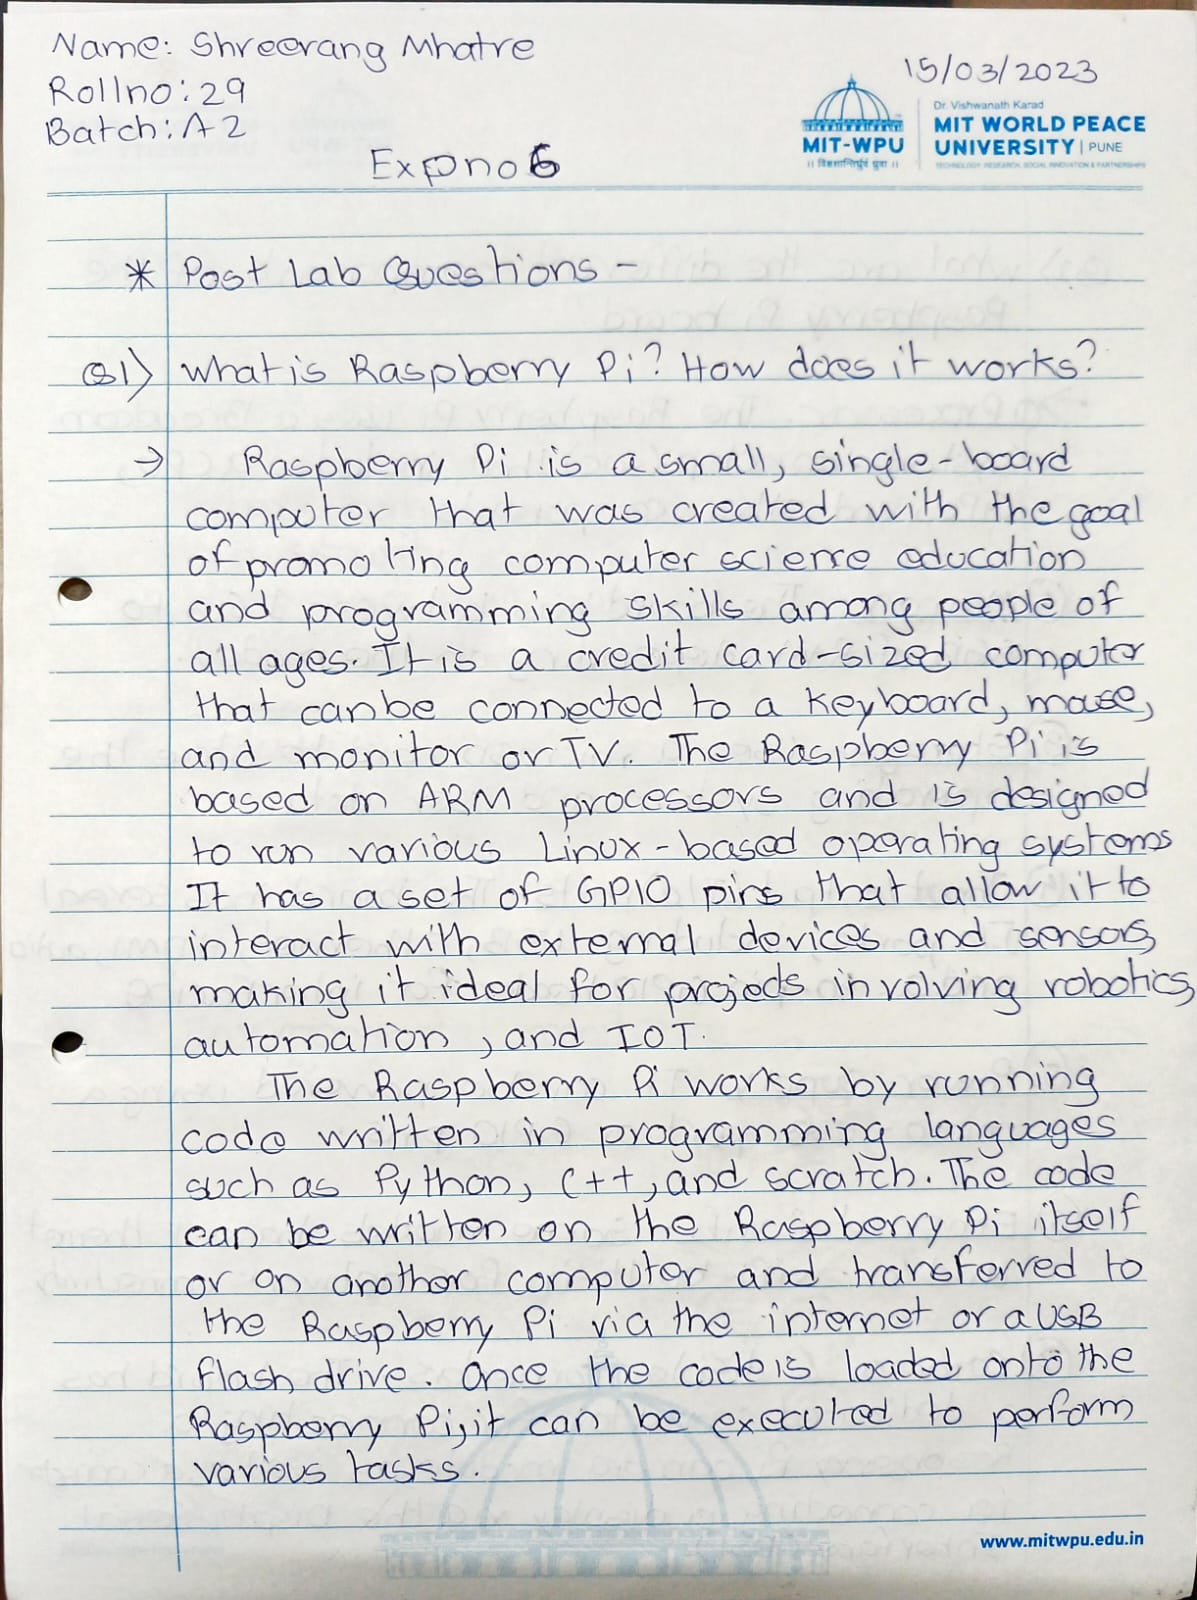 Name: Shreerang Mhatre
Rollno: 29
Batch: A2
15/03/2023
Exp no 6
MIT-WPU
।। विश्वशान्तिर्ध्रुवं ध्रुवा ।।
Dr. Vishwanath Karad
MIT WORLD PEACE
UNIVERSITY | PUNE
TECHNOLOGY, RESEARCH, SOCIAL INNOVATION & PARTNERSHIPS
* Post Lab Questions -
Q1) what is Raspberry Pi? How does it works?
→ Raspberry Pi is a small, single-board
computer that was created with the goal
of promoting computer science education
and programming skills among people of
all ages. It is a credit card-sized computer
that can be connected to a keyboard, mouse,
and monitor or TV. The Raspberry Pi is
based on ARM processors and is designed
to run various Linux-based operating systems
It has a set of GPIO pins that allow it to
interact with external devices and sensors,
making it ideal for projects involving robotics,
automation, and IOT.
The Raspberry Pi works by running
code written in programming languages
such as Python, C++, and scratch. The code
can be written on the Raspberry Pi itself
or on another computer and transferred to
the Raspberry Pi via the internet or a USB
flash drive. Once the code is loaded onto the
Raspberry Pi, it can be executed to perform
various tasks.
www.mitwpu.edu.in